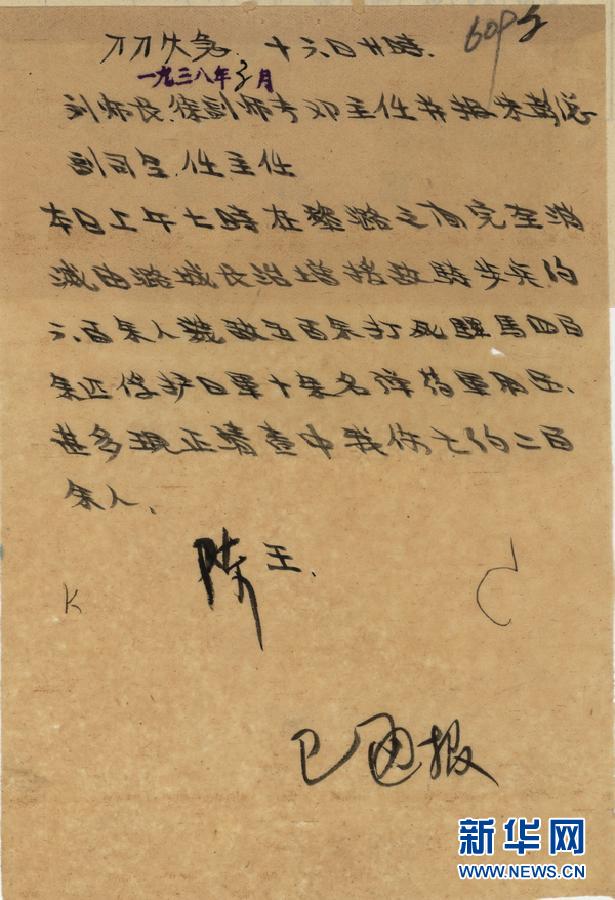 万万火急. 十六日廿時.
一九三八年3月
刘师长徐副师长邓主任并报朱彭总
副司令.任主任
本日上午七時在黎路之间完全消
滅由路城长治增援敌騎步兵约
六百余人,
敌五百余打死騾馬四百
余匹俘护日軍十余名弹药軍用品、
甚多現正清查中我伤亡约二百
余人、
陈 王.
K
C
已
报
新华网
WWW.NEWS.CN